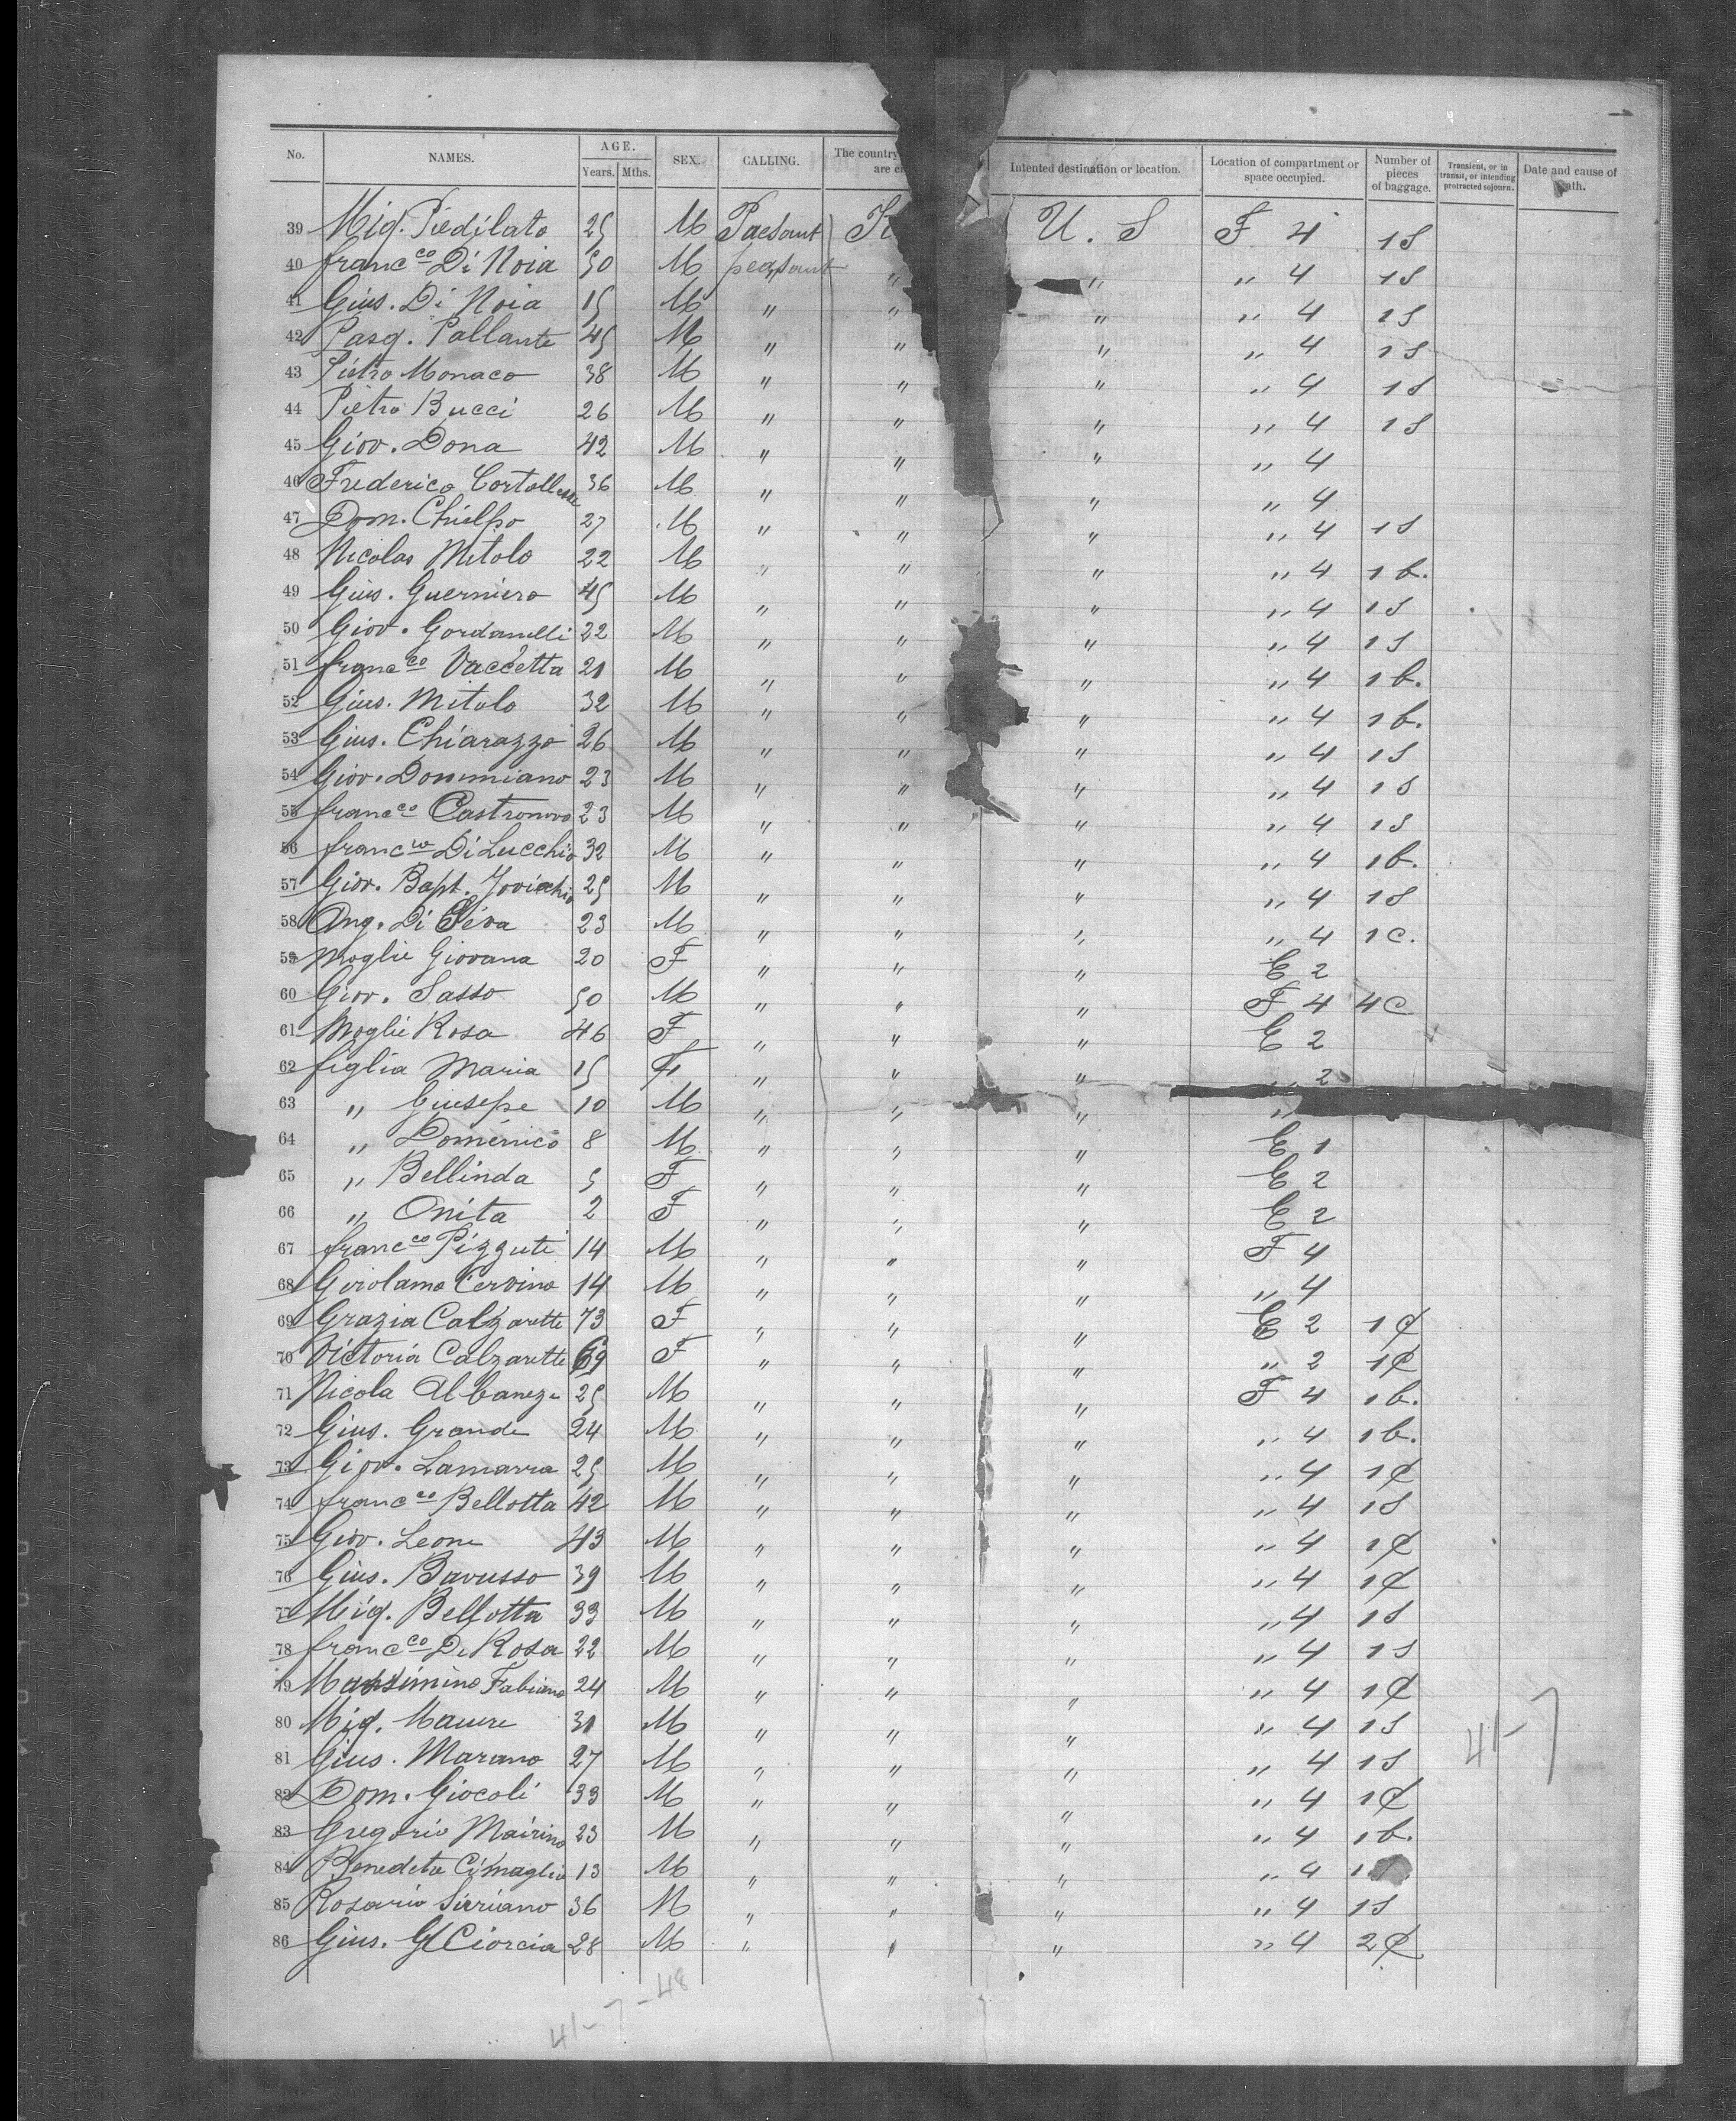 No. NAMES. AGE. Years. Mths. SEX. CALLING. The country are Intented destination or location. Location of compartment or space occupied. Number of pieces of baggage. Transient, or in transit, or intending protracted sojourn. Date and cause of
39 Mig. Piedilato 25 M Paesant U. S F 4 1S
40 Franc.co Di Noia 50 M peasant " " " 4 1S
41 Gius. Di Noia 15 M " " " " 4 1S
42 Pasq. Pallante 45 M " " " " 4 1S
43 Pietro Monaco 38 M " " " " 4 1S
44 Pietro Bucci 26 M " " " " 4 1S
45 Giov. Dona 42 M " " " " 4
46 Frederico 36 M " " " " 4
47 Dom. Chielpo 27 M " " " " 4 1S
48 Nicolas Mitolo 22 M " " " " 4 1b.
49 Gius. Guerniero 45 M " " " " 4 1S
50 Giov. Gordanelli 22 M " " " " 4 1S
51 Franc.co Vaccetta 21 M " " " " 4 1b.
52 Gius. Mitolo 32 M " " " " 4 1b.
53 Gius. Chiarazzo 26 M " " " " 4 1S
54 Giov. Dommiano 23 M " " " " 4 1S
55 Franc.co Castronovo 23 M " " " " 4 1S
56 Franc.co Di Lucchio 32 M " " " " 4 1b.
57 Giov. Bapt. 25 M " " " " 4 1S
58 Ang. Di 23 M " " " " 4 1C.
59 Moglie Giovana 20 F " " " E 2
60 Giov. Sasso 50 M " " " F 4 4C
61 Moglie Rosa 46 F " " " E 2
62 figlia Maria 15 F " " " " 2
63 " Giusepe 10 M " " " "
64 " Domenico 8 M " " " E 1
65 " Bellinda 5 F " " " E 2
66 " Onita 2 F " " " E 2
67 Franc.co Pizzuti 14 M " " " F 4
68 Girolamo Cervino 14 M " " " " 4
69 Grazia Calzarette 73 F " " " E 2 1C
70 Victoria Calzarette 69 F " " " " 2 1C
71 Nicola Albaneze 25 M " " " F 4 1b.
72 Gius. Grande 24 M " " " " 4 1b.
73 Giov. Lamarra 25 M " " " " 4 1C
74 Franc.co Bellotta 42 M " " " " 4 1S
75 Giov. Leone 43 M " " " " 4 1C
76 Gius. Bavusso 39 M " " " " 4 1C
77 Mig. Bellotta 33 M " " " " 4 1S
78 Franc.co De Rosa 22 M " " " " 4 1S
79 Massimino Fabiano 24 M " " " " 4 1C
80 Mig. 31 M " " " " 4 1S
81 Gius. Marano 27 M " " " " 4 1S
82 Dom. Giocoli 33 M " " " " 4 1C
83 Gregorio Mairino 23 M " " " " 4 1b.
84 Benedeto Cimaglia 13 M " " " " 4 1
85 Rosario Sirriano 36 M " " " " 4 1S
86 Gius. Ciorcia 28 M " " " " 4 2C
41-7
41-7-48